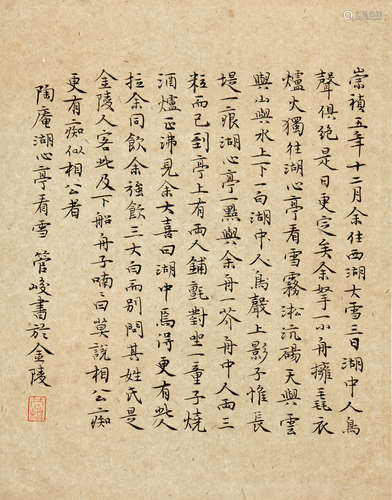 崇禎五年十二月余住西湖大雪三日湖中人鳥
聲俱絕是日更定矣余拏一小舟擁毛衣
爐火獨往湖心亭看雪霧淞沆碭天與雲
與山與水上下一白湖中人鳥聲上影子惟長
堤一痕湖心亭一點與余舟一芥舟中人兩三
粒而已到亭上有兩人鋪氈對坐一童子燒
酒爐正沸見余大喜曰湖中焉得更有此人
拉余同飲余強飲三大白而別問其姓氏是
金陵人客此及下船舟子喃喃曰莫說相公痴
更有痴似相公者
陶庵湖心亭看雪 管峻書於金陵